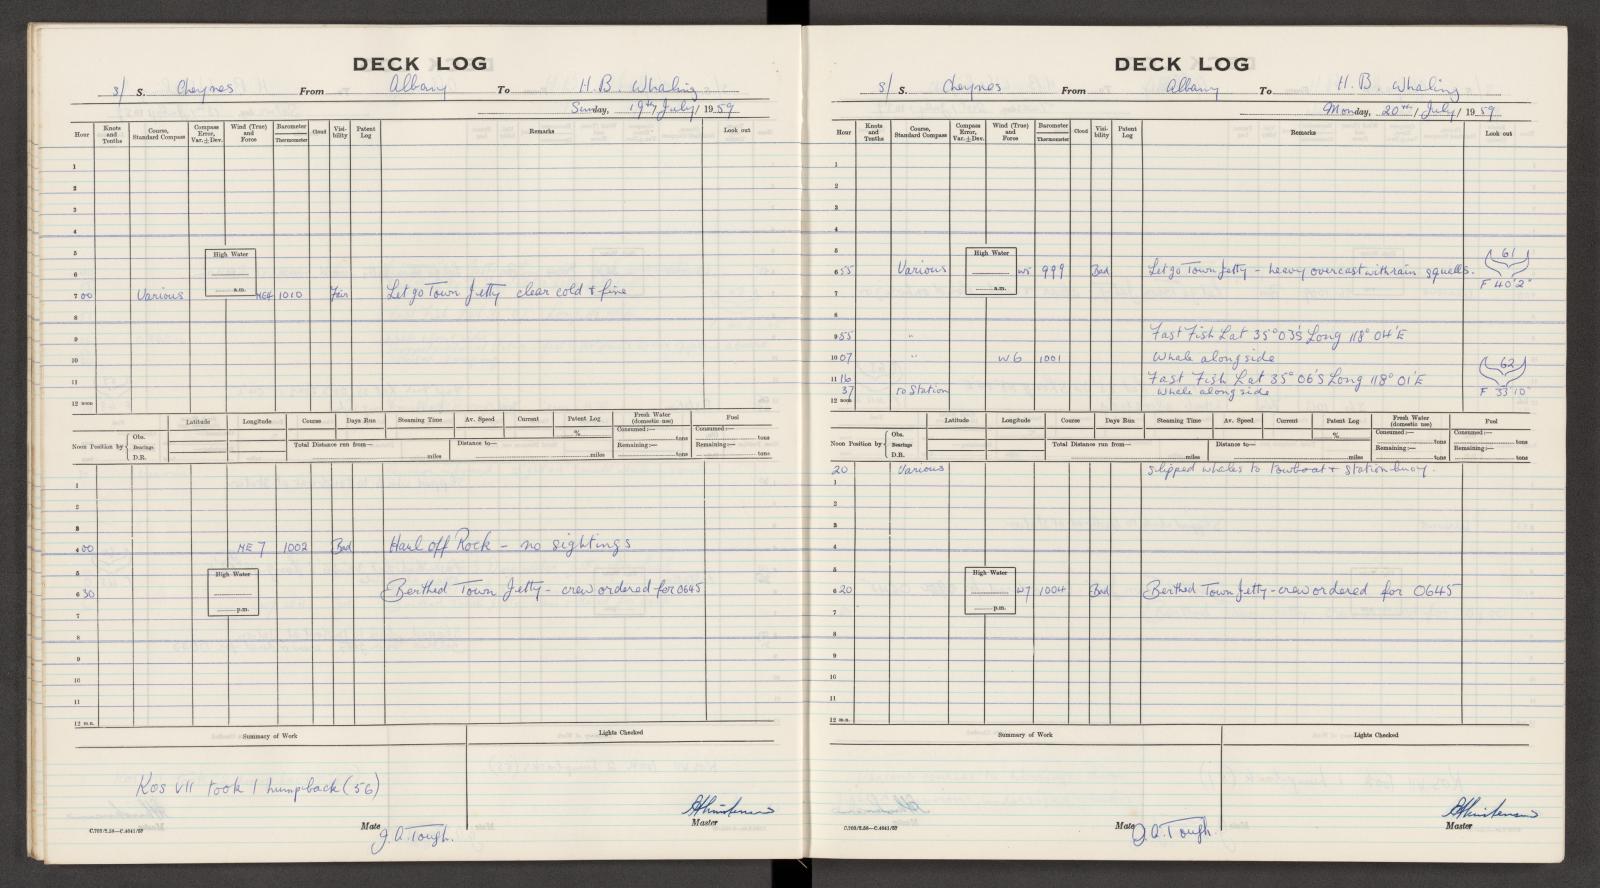 DECK LOG
s/ S. Cheynes From Albany To H.B. Whaling
Sunday, 19th July/ 1959
Hour Knots and Tenths Course, Standard Compass Compass Error, Var. ± Dev. Wind (True) and Force Barometer Thermometer Cloud Visibility Patent Log Remarks Look out
1
2
3
4
5 High Water
6
a.m.
7 00 Various NE4 1010 Fair Let go Town Jetty clear cold & fine
8
9
10
11
12 noon
Noon Position by Obs. Bearings D.R. Latitude Longitude Course Days Run Steaming Time Av. Speed Current Patent Log Fresh Water (domestic use) Fuel
% Consumed:— tons Consumed:— tons
Total Distance run from— miles Distance to— miles Remaining:— tons Remaining:— tons
1
2
3
4 00 NE 7 1002 Bad Haul off Rock - no sightings
5 High Water
6 30 Berthed Town Jetty - crew ordered for 0645
p.m.
7
8
9
10
11
12 m.n.
Summary of Work Lights Checked
Kos VII took 1 humpback (56)
C.703/2.58—C.4041/57 Mate J.A. Tough. Master
DECK LOG
s/ S. Cheynes From Albany To H.B. Whaling
Monday, 20th July/ 1959
Hour Knots and Tenths Course, Standard Compass Compass Error, Var. ± Dev. Wind (True) and Force Barometer Thermometer Cloud Visibility Patent Log Remarks Look out
1
2
3
4
5 High Water 61
6 55 Various W5 999 Bad Let go Town Jetty - heavy overcast with rain squalls.
F 40'2"
a.m.
7
8
9 55 " Fast Fish Lat 35° 03'S Long 118° 04'E
10 07 " W6 1001 Whale alongside 62
11 16 Fast Fish Lat 35° 06'S Long 118° 01'E
37 To Station Whale alongside F 33'10"
12 noon
Noon Position by Obs. Bearings D.R. Latitude Longitude Course Days Run Steaming Time Av. Speed Current Patent Log Fresh Water (domestic use) Fuel
% Consumed:— tons Consumed:— tons
Total Distance run from— miles Distance to— miles Remaining:— tons Remaining:— tons
20 Various Slipped whales to towboat & station buoy.
1
2
3
4
5 High Water
6 20 W7 1004 Bad Berthed Town Jetty - crew ordered for 0645
p.m.
7
8
9
10
11
12 m.n.
Summary of Work Lights Checked
C.703/2.58—C.4041/57 Mate J.A. Tough. Master